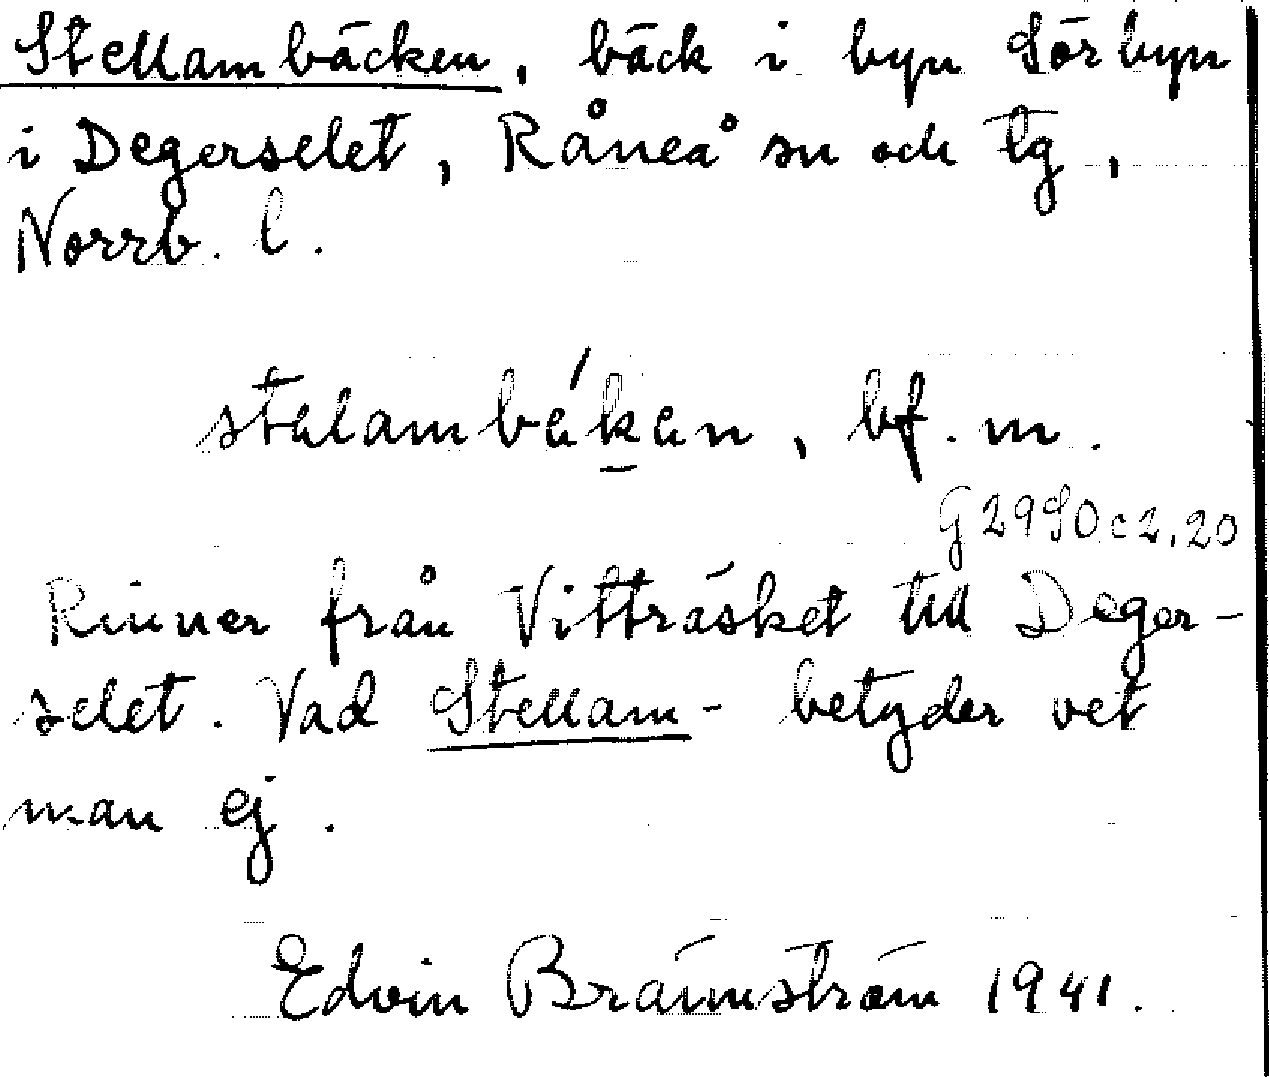 Stellambäcken, bäck i byn Sörbyn
i Degerselet, Råneå sn och tg,
Norrb. l.
stalambäkan, bf. m.
G 2990 c 2, 20
Rinner från Vitträsket till Deger-
selet. Vad Stellam- betyder vet
man ej.
Edvin Brännström 1941.